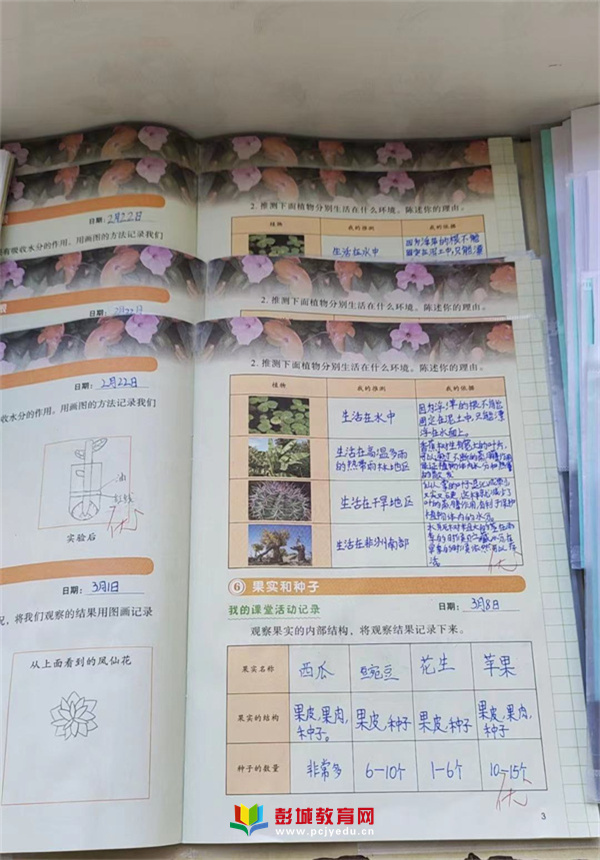 日期：2月22日
有吸收水分的作用。用画图的方法记录我们
2. 推测下面植物分别生活在什么环境。陈述你的理由。
植物 我的推测 我的依据
生活在水中
因为浮萍的根不能
日期：2月22日
2. 推测下面植物分别生活在什么环境。陈述你的理由。
日期：2月22日
收水分的作用。用画图的方法记录我们
油
红线
优
实验后
日期：3月1日
况，将我们观察的结果用图画记录
从上面看到的凤仙花
2. 推测下面植物分别生活在什么环境。陈述你的理由。
植物 我的推测 我的依据
生活在水中
因为浮萍的根不能
固定在泥土中，只能漂
浮在水面上。
生活在高温多雨
的热带雨林地区
生活在干旱地区
生活在非洲南部
优
6 果实和种子
我的课堂活动记录 日期：3月8日
观察果实的内部结构，将观察结果记录下来。
果实名称 西瓜 豌豆 花生 苹果
果实的结构 果皮，果肉，种子。 果皮，种子 果皮，种子 果皮，果肉，种子
种子的数量 非常多 6—10个 1—6个 10—15个
优
3
彭城教育网
www.pcjyedu.cn